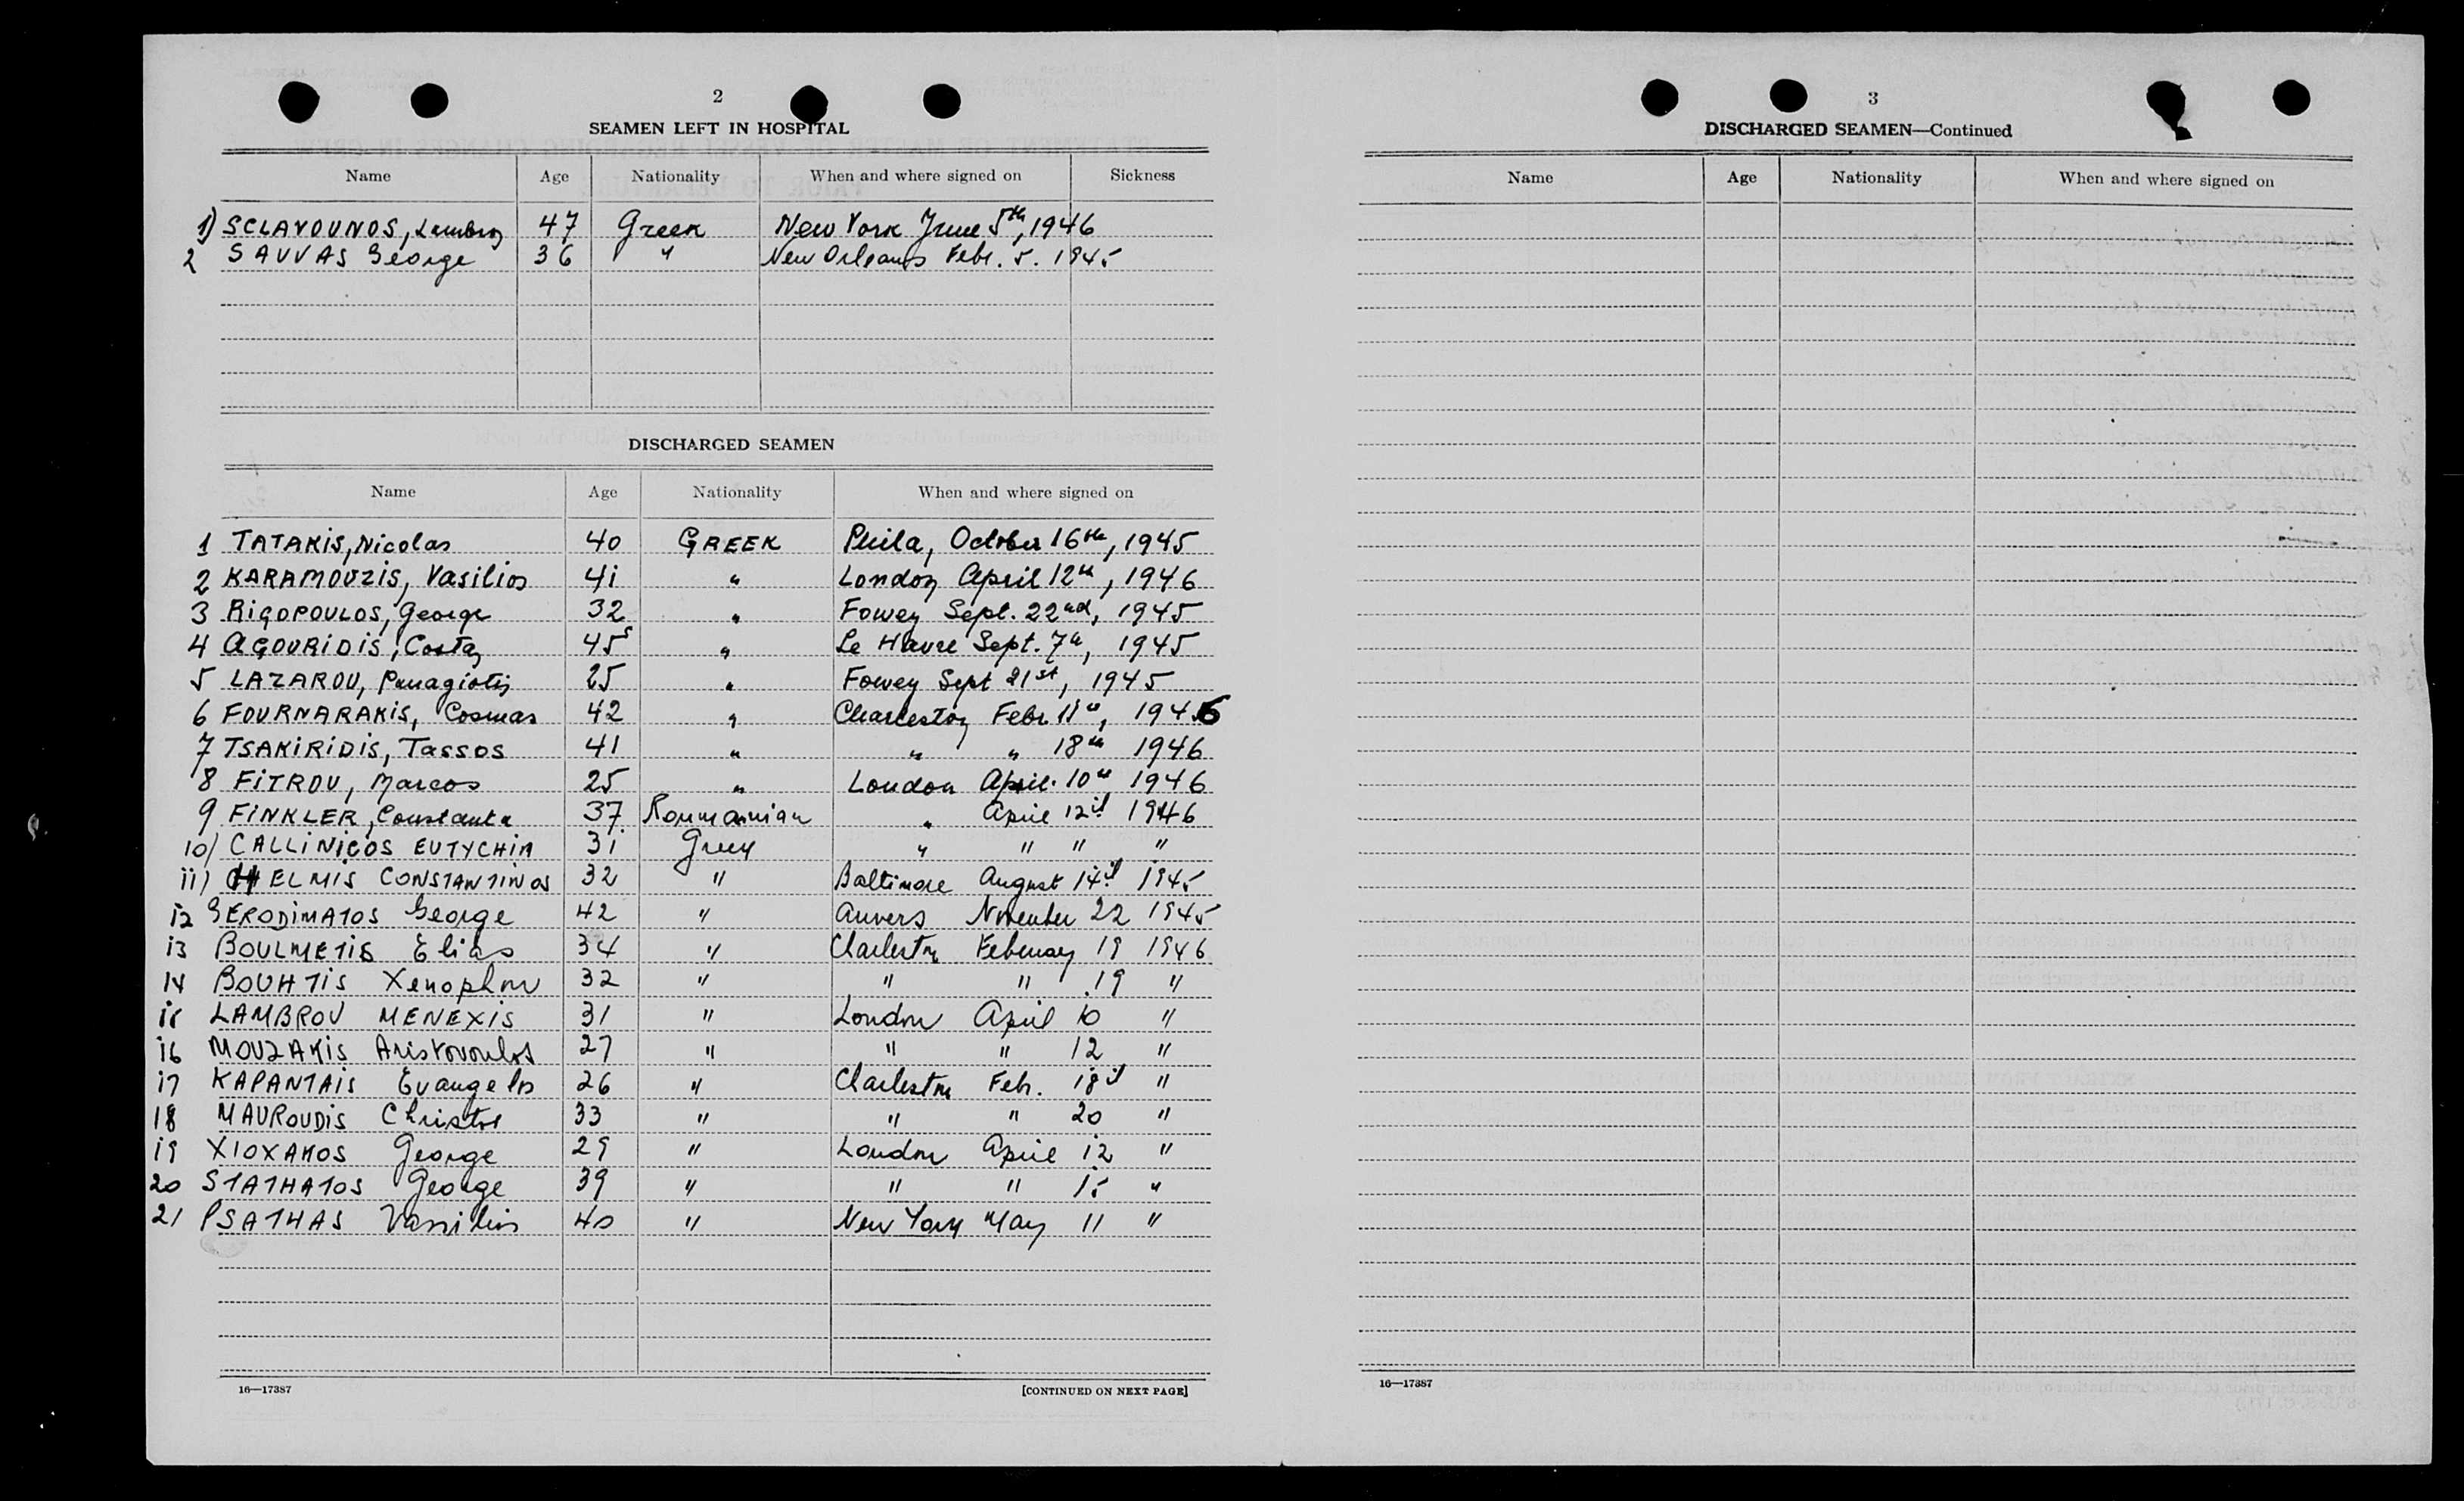 2
SEAMEN LEFT IN HOSPITAL
Name Age Nationality When and where signed on Sickness
1) SCLAVOUNOS, Lambros 47 Greek New York June 5th, 1946
2 SAVVAS George 36 " New Orleans Febr. 5. 1945
DISCHARGED SEAMEN
Name Age Nationality When and where signed on
1 TATAKIS, Nicolas 40 GREEK Phila, October 16th, 1945
2 KARAMOUZIS, Vasilios 41 " London April 12th, 1946
3 RIGOPOULOS, George 32 " Fowey Sept. 22nd, 1945
4 AGOURIDIS, Costas 45 " Le Havre Sept. 7th, 1945
5 LAZAROU, Panagiotis 25 " Fowey Sept 21st, 1945
6 FOURNARAKIS, Cosmas 42 " Charleston Febr. 11th, 1946
7 TSAKIRIDIS, Tassos 41 " " " 18th 1946
8 FITROU, Marcos 25 " London April. 10th, 1946
9 FINKLER, Constanta 37 Roumanian " April 12th 1946
10) CALLINICOS EUTYCHIA 31 Greek " " " "
11) CHELMIS CONSTANTINOS 32 " Baltimore August 14th 1945
12 GERODIMATOS George 42 " Anvers November 22 1945
13 BOULMETIS Elias 34 " Charleston February 19 1946
14 BOUHTIS Xenophon 32 " " " 19 "
15 LAMBROU MENEXIS 31 " London April 10 "
16 MOUZAKIS Aristovoulos 27 " " " 12 "
17 KAPANTAIS Evangelos 26 " Charleston Feb. 18th "
18 MAUROUDIS Christos 33 " " " 20 "
19 XIOXAKOS George 29 " London April 12 "
20 STATHATOS George 39 " " " 15 "
21 PSATHAS Vassilios 40 " New York May 11 "
16—17387 [CONTINUED ON NEXT PAGE]
3
DISCHARGED SEAMEN—Continued
Name Age Nationality When and where signed on
16—17387